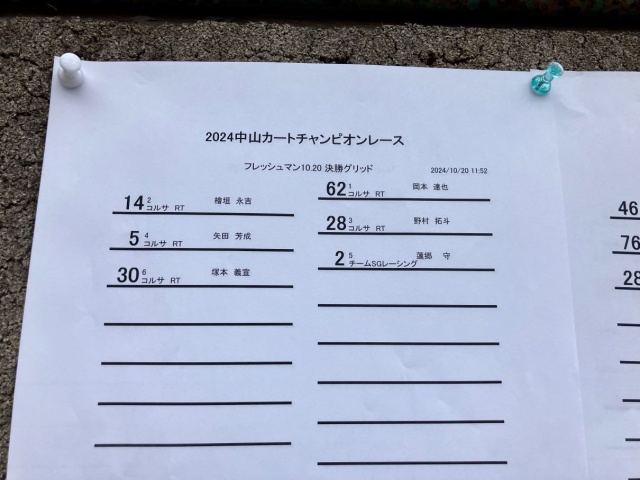 2024中山カートチャンピオンレース
フレッシュマン10.20 決勝グリッド
2024/10/20 11:52
62 1 コルサ RT 岡本 達也
14 2 コルサ RT 檜垣 永吉
28 3 コルサ RT 野村 拓斗
5 4 コルサ RT 矢田 芳成
2 5 チームSGレーシング 蓮郷 守
30 6 コルサ RT 塚本 義宣
46
76
28